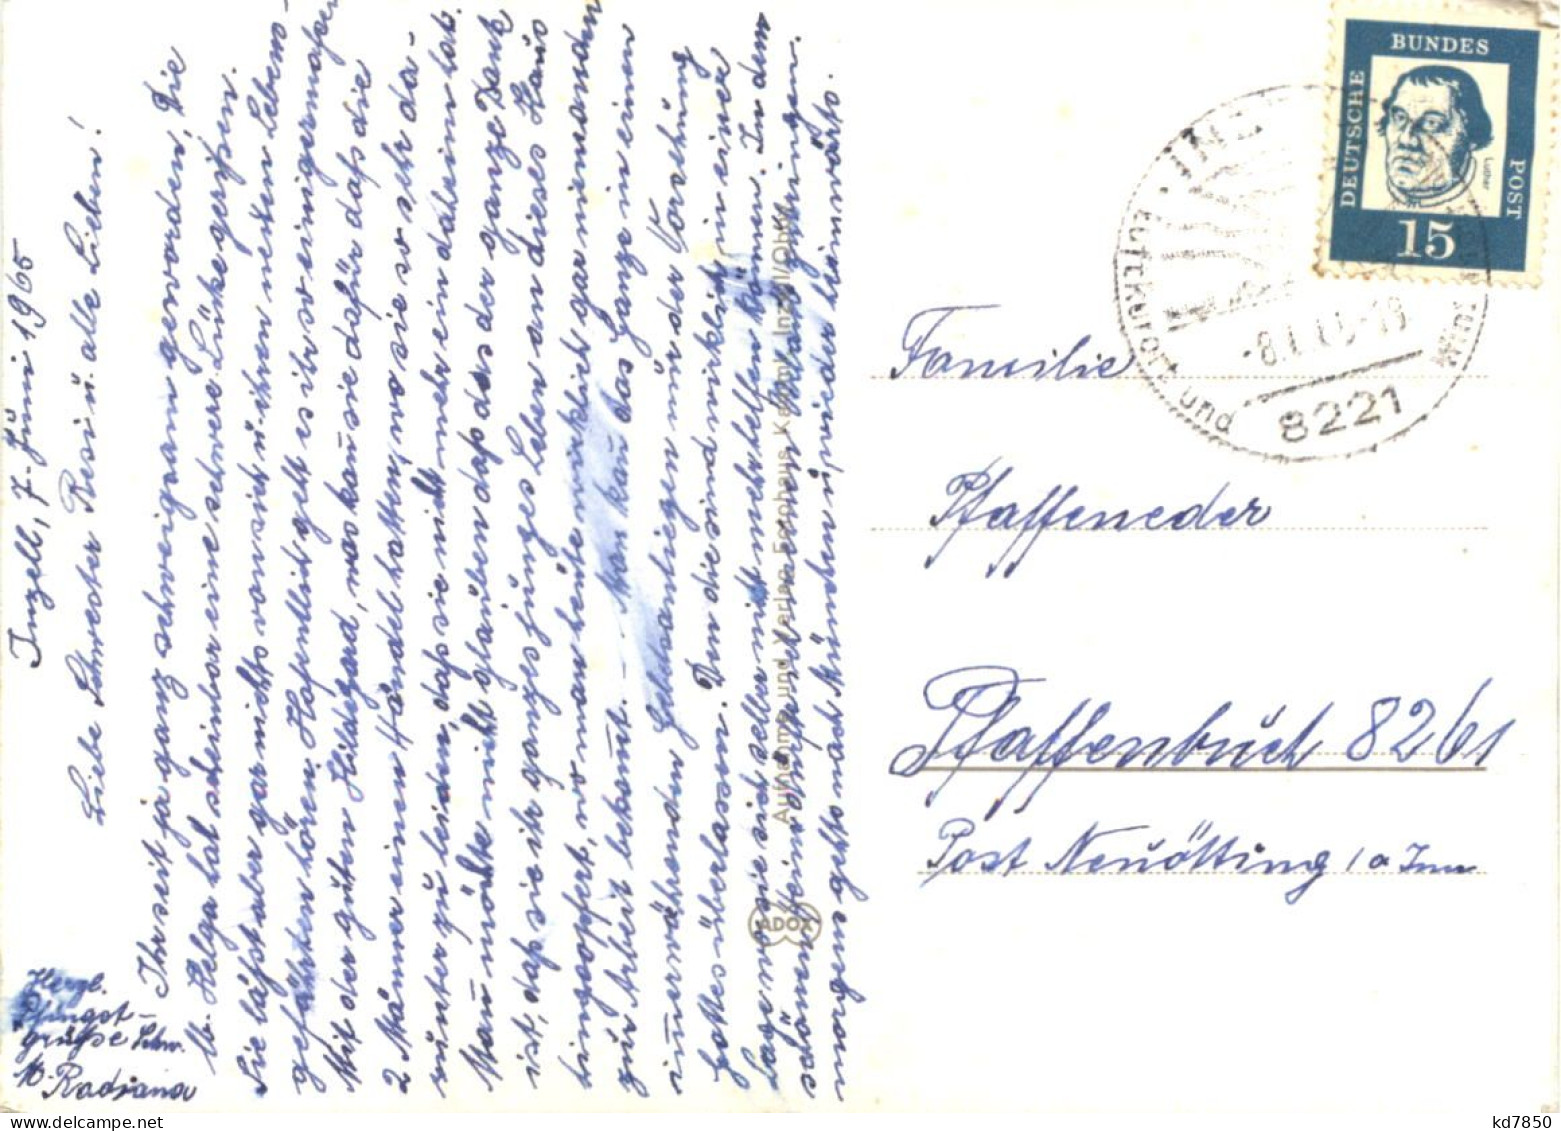 Inzell, 7. Juni 1965
Liebe Schwester Resi u. alle Lieben!
Ihr seit ja ganz schweigsam geworden. Die
M. Helga hat scheinbar eine schwere Lücke gerißen.
Sie läßt aber gar nichts von sich u. ihren neuen Lebens-
gefährten hören. Hoffentlich geht es ihr so einigermaßen.
Mit der guten Hildegard, was kann sie dafür daß die
2 Männer einen Händel hatten, wo sie so sehr da-
runter zu leiden, daß sie nicht mehr ein daheim hat.
Man möchte nicht glauben daß das der ganze Dank
ist, daß sie ihr ganzes junges Leben an dieses Haus
hingeopfert, wo man heute wirklich gar niemanden
zur Arbeit bekommt. – Man kann das Ganze in einem
immerwährenden Gebetsanliegen nur der Vorsehung
Gottes überlassen. Denn die sind wirklich in einer
Lage wo sie sich selber nicht mehr helfen können. In dem
schönen Heim dürfte ich meinen Urlaub verbringen.
morgen gehts nach München wieder heimwärts.
Herzl.
Pfingst-
grüße Schw.
M. Radiana
Aufnahme und Verlag Fotohaus Inzell/Obb.
ADOX
DEUTSCHE
BUNDES
POST
Luther
15
Luftkurort und
8221
Familie
Pfaffeneder
Pfaffenbuch 8261
Post Neuötting a Inn
kd7850